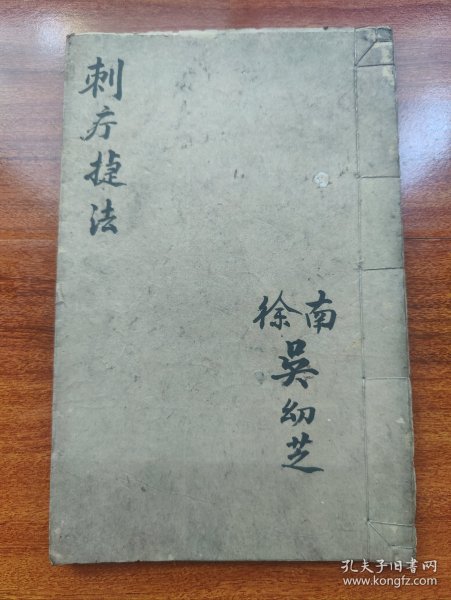 刺疔捷法
南徐
吴幼芝
孔夫子旧书网
www.kongfz.com